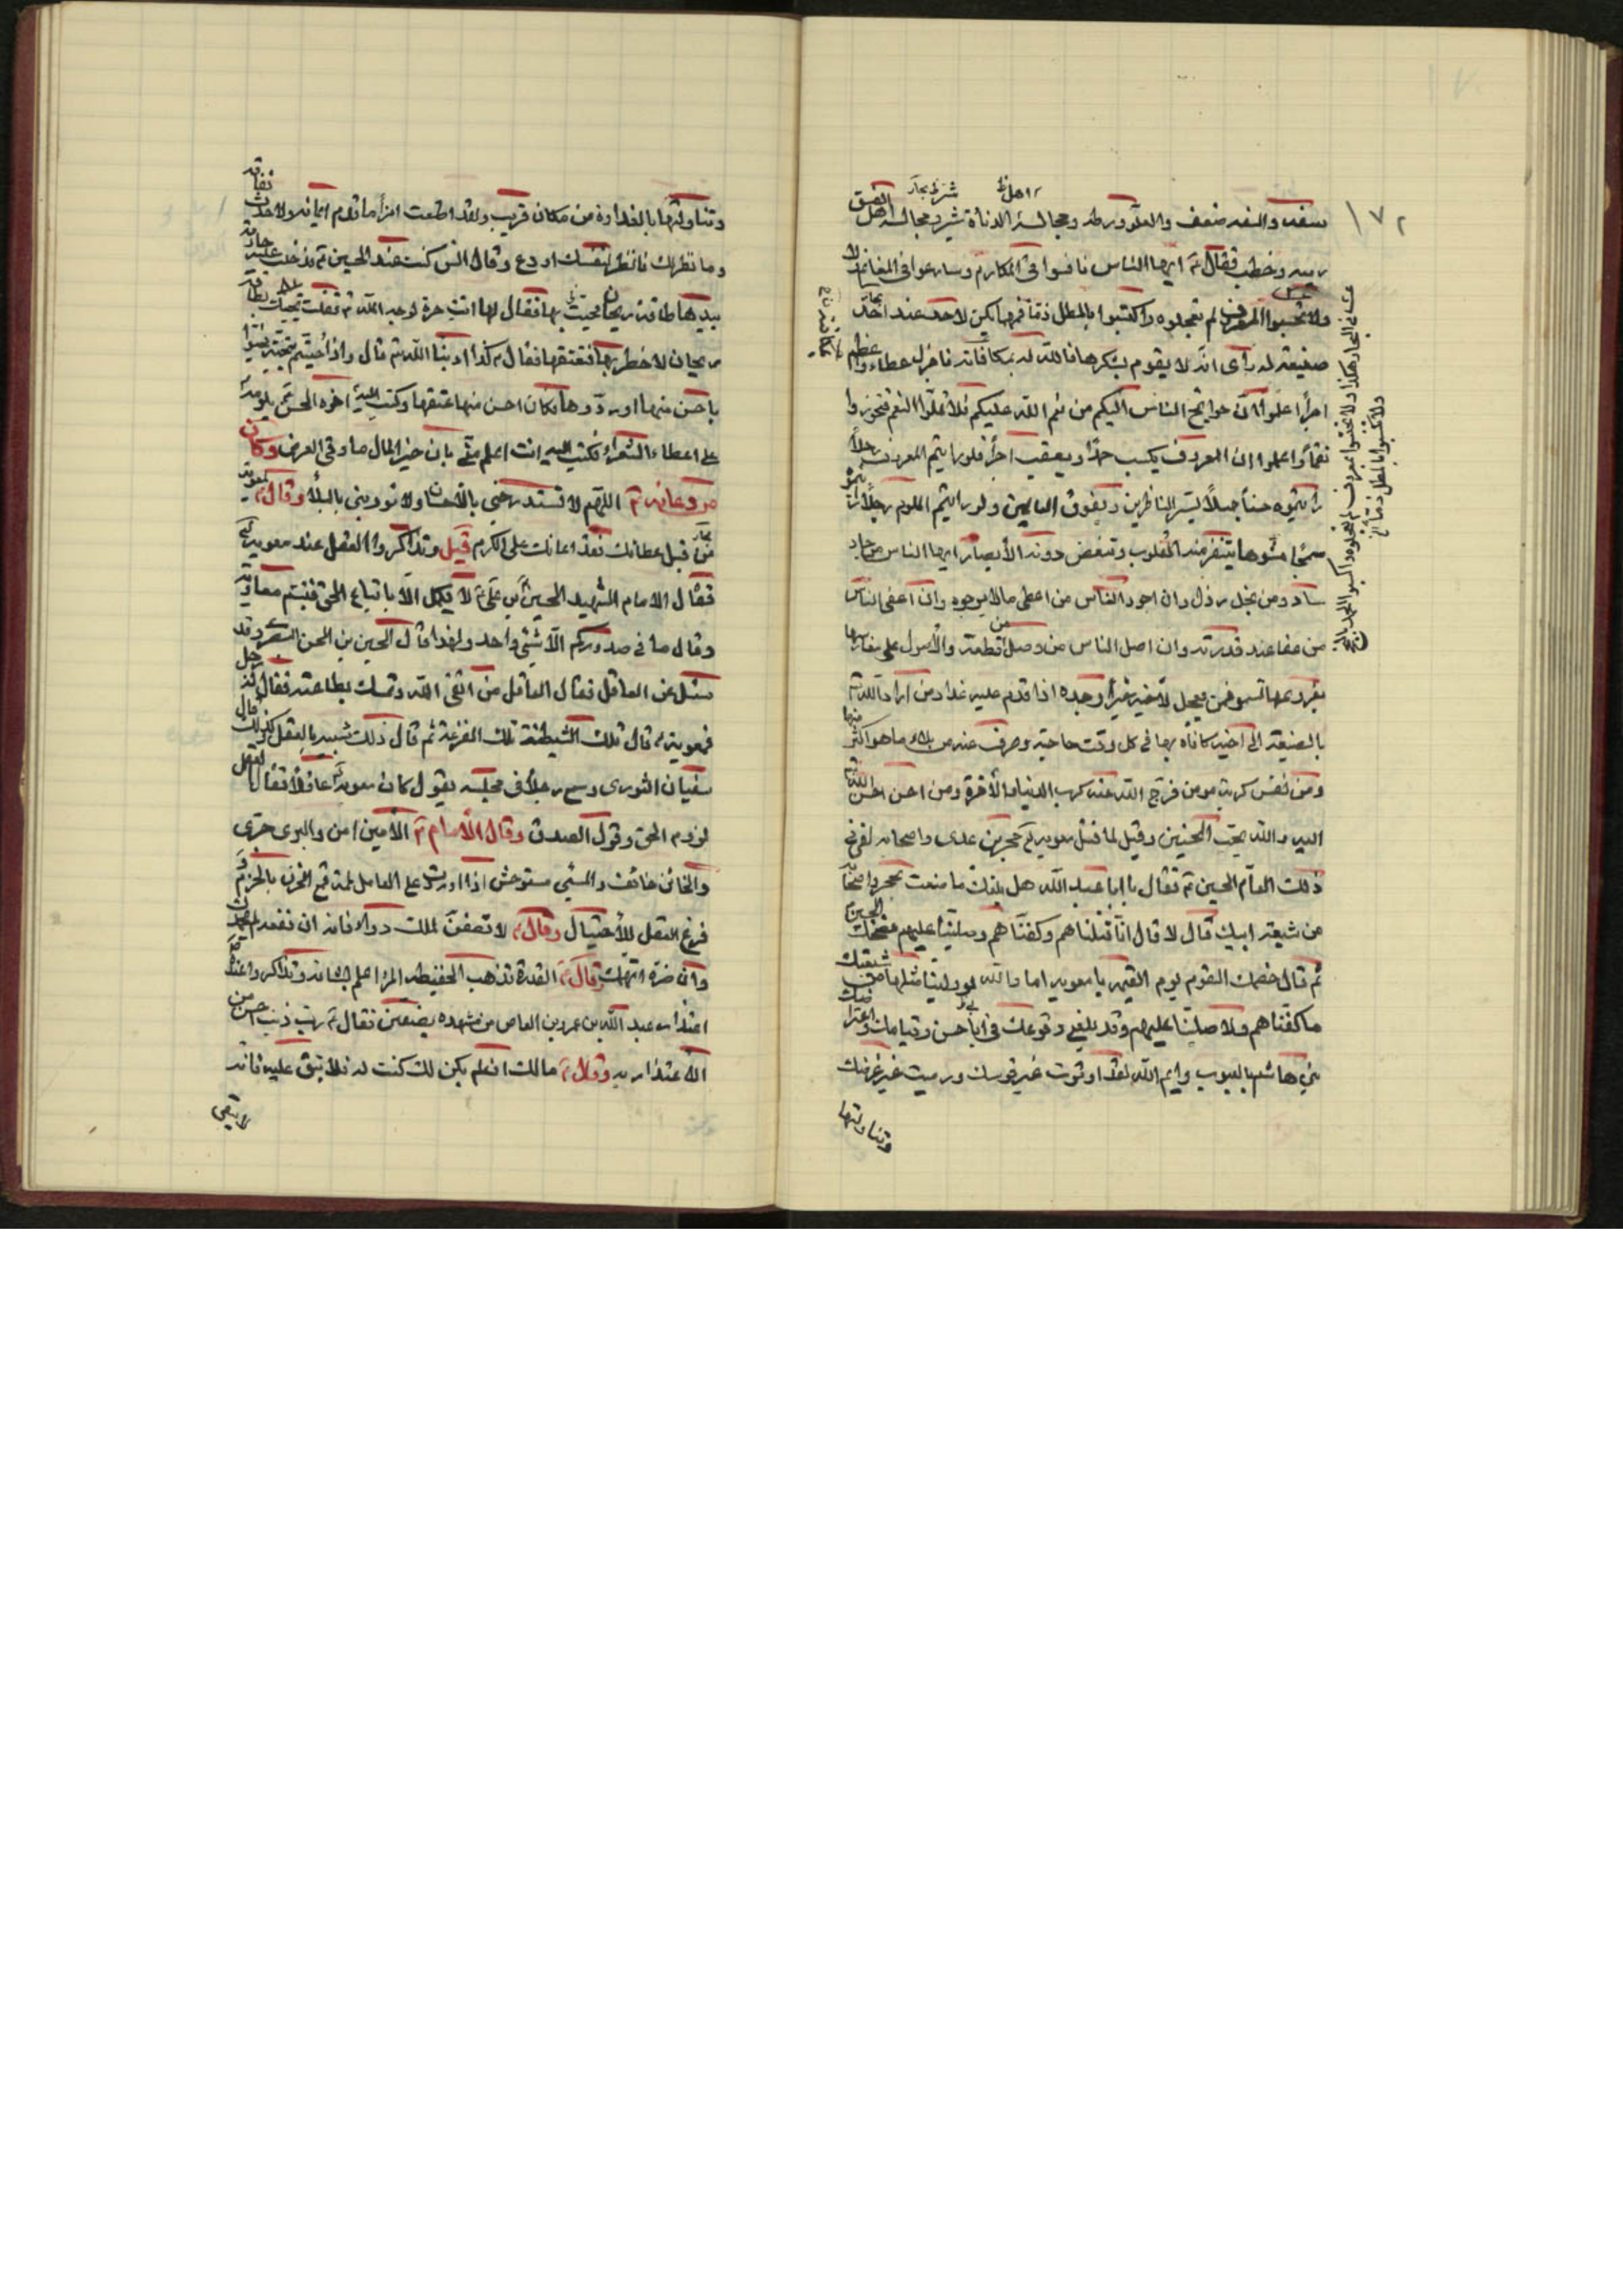 ١٧٢
سفه والسفه ضعف والغلو ورطة ومجالسة الدناءة شر ومجالسة اهل الفسق
ريبة وخطب فقال ع ايها الناس نافسوا في المكارم وسارعوا في المغانم ولا
تحتسبوا المعروف لم تعجلوه واكتسبوا بالمطل ذما فمهما يكن لاحد عند احد
صنيعة له رأى انه لا يقوم بشكرها فالله له بمكافاته فاجزل عطاء واعظم
اجرا اعلموا ان حوائج الناس اليكم من نعم الله عليكم فلا تملوا النعم فتحوزوا
نقما واعلموا ان المعروف يكسب حمدا ويعقب اجرا فلو رايتم المعروف رجلا
رايتموه حسنا جميلا يسر الناظرين ويفوق العالمين ولو رايتم اللوم رجلا رايتموه
سمجا مشوها ينفر منه القلوب وتغض دونه الأبصار ايها الناس من جاد
ساد ومن بخل رذل وان اجود الناس من اعطى من لا يرجوه وان اعفى الناس
من عفا عند قدرته وان اصل الناس من وصل من قطعه والأصول على مغارسها
بفروعها تسمو فمن عجل لأخيه خيرا وجده اذا قدم عليه غدا ومن اراد الله
بالصنيعة الى اخيه كافاه بها في كل وقت حاجته وصرف عنه من بلاء ما هو اكثر منها
ومن نفس كربة مومن فرج الله عنه كرب الدنيا والأخرة ومن احسن احسن الله
اليه والله يحب المحسنين وقيل لما قتل معوية حجر بن عدى واصحابه لقى في
ذلك العام الحسين ع فقال يا ابا عبد الله هل بلغك ما صنعت بحجر واصحابه
من شيعة ابيك قال لا قال انا قتلناهم وكفناهم وصلينا عليهم فضحك الحسين
ثم قال خصمك القوم يوم القيمة يا معوية اما والله لو ولينا مثلها من شيعتك
ما كفناهم ولا صلينا عليهم وقد بلغني وقوعك في ابا حسن وقيامك واعتراضك
بني هاشم بالعيوب وايم الله لقد اوترت غير قوسك ورميت غير غرضك
وتناولتها
وتناولتها بالغداوة من مكان قريب ولقد اطعت امرأ ما قدم ايمانه ولا حدث نفاقه
وما نظر لك فانظر لنفسك او دع وقال انس كنت عند الحسين ع فدخلت عليه جارية
بيدها طاقة ريحان فحيته بها فقال لها انت حرة لوجه الله فقلت تحييك بطاقة
ريحان لا خطر بها فتعتقها فقال كذا ادبنا الله قال واذا حييتم بتحية فحيوا
باحسن منها او ردوها وكان احسن منها عتقها وكتب اليه اخوه الحسن ع يلومه
على اعطاء الشعراء فكتب اليه انت اعلم منى بان خير المال ما وقى العرض وكان
من دعائه ع اللهم لا تستدرجني بالأحسان ولا تودبني بالبلاء وقال ع
من قبل عطائك فقد اعانك على الكرم قيل وتذاكروا العقل عند معوية
فقال الامام الشهيد الحسين بن على ع لا يكمل الا باتباع الحق فتبسم معاوية
وقال ما في صدوركم الا شئ واحد ولهذا قال الحسين بن الحسن السعدي وقد
سئل عن العاقل فقال العاقل من اتقى الله وتمسك بطاعته فقال له رجل
فمعوية قال تلك الشيطنة تلك الفزعة ثم قال ذلك شبيه بالعقل وكذلك قال
سفيان الثورى وسمع رجلا في مجلسه يقول كان معوية عاقلا فقال العقل
لزوم الحق وقول الصدق وقال الأمام ع الأمين امن والبرى جرى
والخائن خائف والمسئ مستوحش اذا اوردت على العاقل لمة قمع الحزن بالحزم و
قرع العقل للأحتيال وقال ع لا تصفن لملك دواء فانه ان نفعه لم يحمدك
وان ضره اتهمك وقال ع القدرة تذهب الحفيظة المرء اعلم بشانه وتذاكروا عنده
اعتذار عبد الله بن عمرو بن العاص من مشهده بصفين فقال ع رب ذنب احسن من
الأعتذار به وقال ع مالك ان لم يكن لك كنت له فلا تبق عليه فانه
لا يبقى